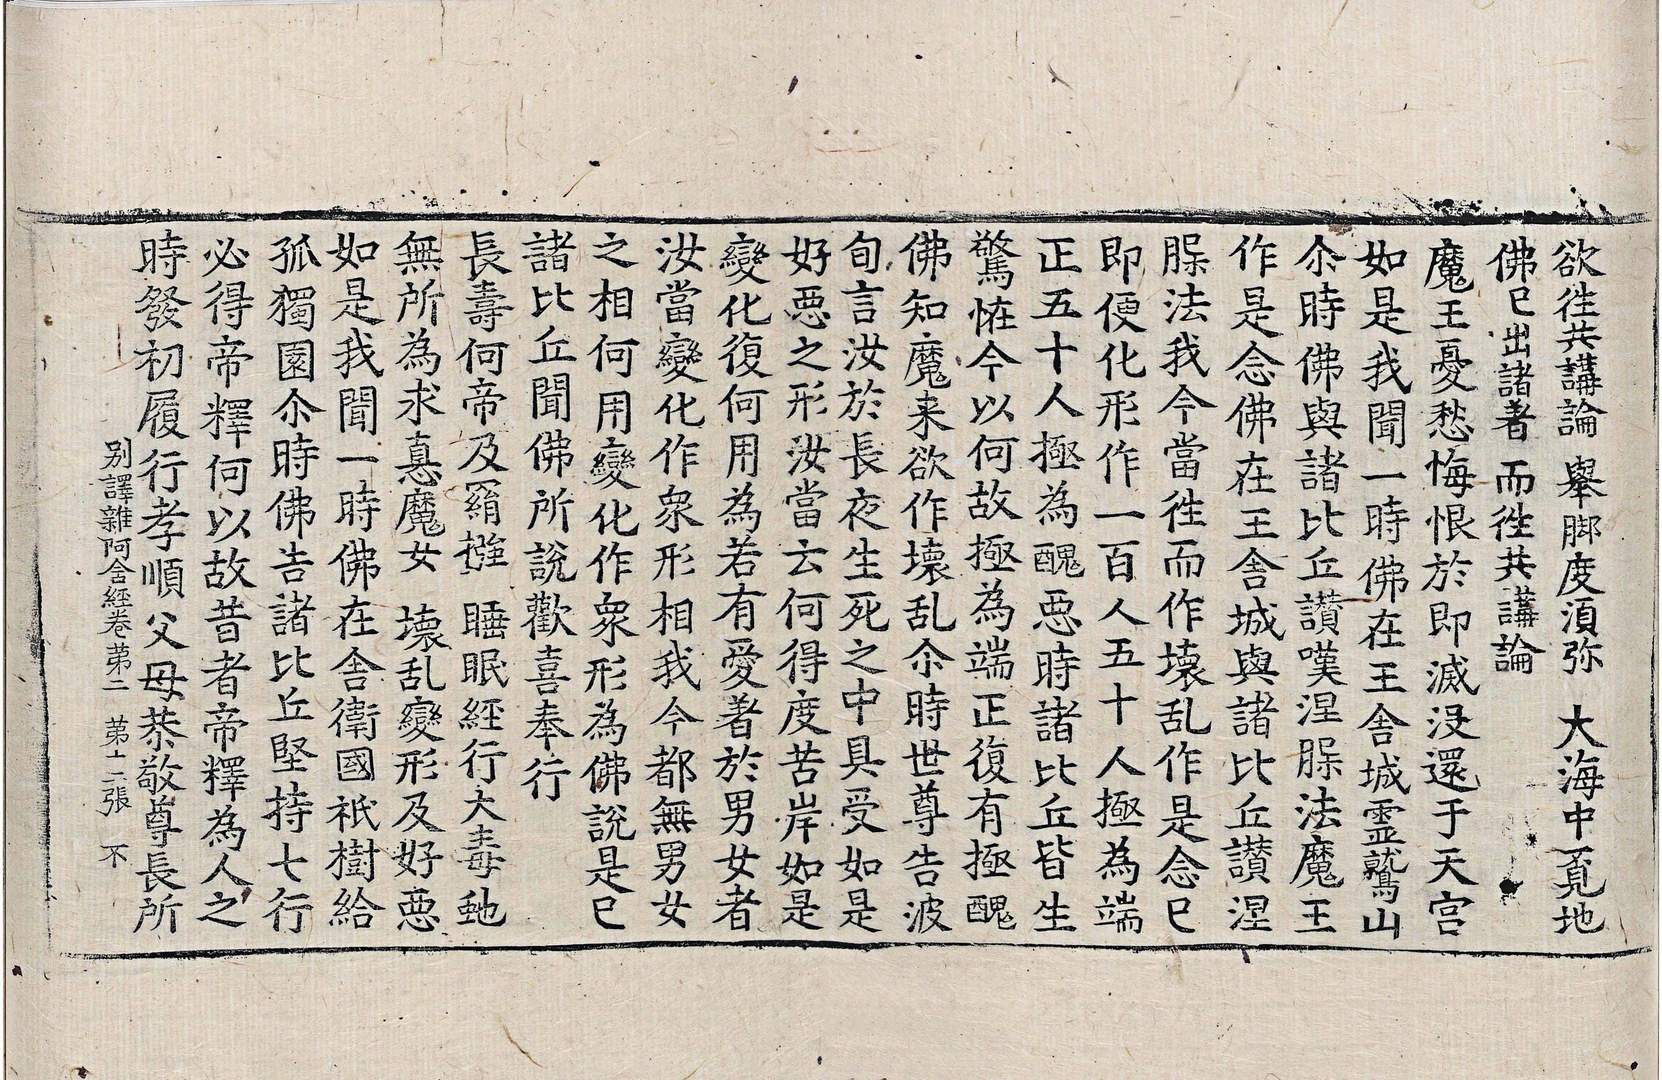 欲徃共講論　舉脚度湏弥　大海中覔地
佛已出諸著　而徃共講論
魔王憂愁悔恨於即滅没還于天宫
如是我聞一時佛在王舍城霊鷲山
尒時佛與諸比丘讃嘆涅䐗法魔王
作是念佛在王舍城與諸比丘讃涅
䐗法我今當徃而作壊乱作是念已
即便化形作一百人五十人極為端
正五十人極為醜惡時諸比丘皆生
驚恠今以何故極為端正復有極醜
佛知魔来欲作壊乱尒時世尊告波
旬言汝於長夜生死之中具受如是
好惡之形汝當云何得度苦岸如是
變化復何用為若有愛著於男女者
汝當變化作衆形相我今都無男女
之相何用變化作衆形為佛說是已
諸比丘聞佛所說歡喜奉行
長壽何帝及羂摧　睡眠經行大毒虵
無所為求惪魔女　壊乱變形及好惡
如是我聞一時佛在舍衛國祇樹給
孤獨園尒時佛告諸比丘堅持七行
必得帝釋何以故昔者帝釋為人之
時發初履行孝順父母恭敬尊長所
别譯雜阿含經卷苐二　苐十二張　不